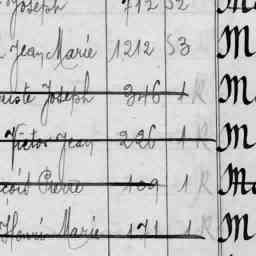 Joseph 712 S2 M
Jean Marie 1212 S3 M
Joseph 346 1 R M
Victor Jean 226 1 R M
Pierre 109 1 R M
Henri Marie 171 1 R M